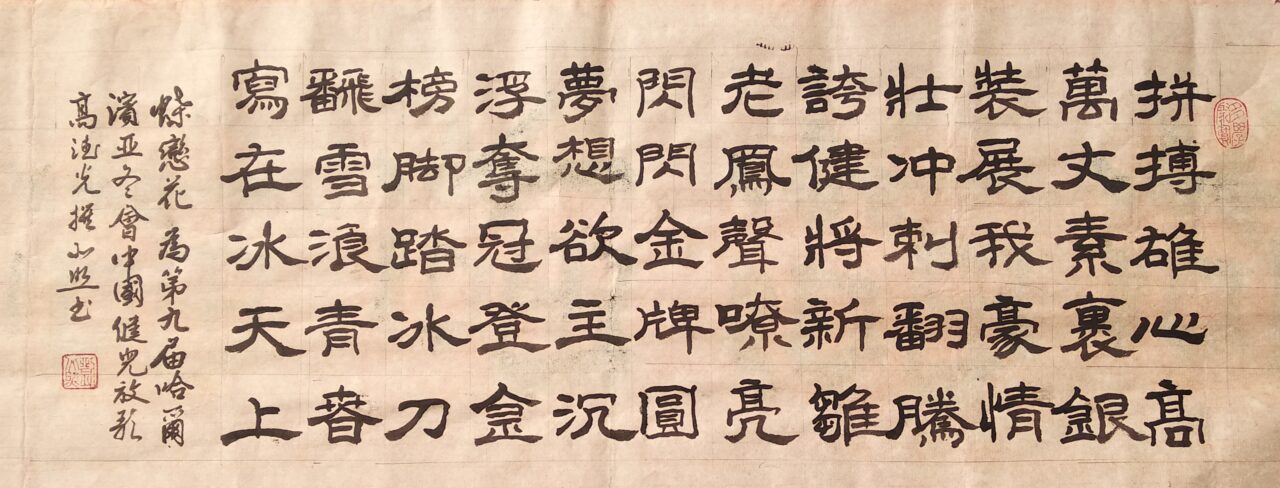 拼搏雄心高
萬丈素裹銀
裝展我豪情
壯冲刺翻騰
誇健將新雛
老鳳聲嘹亮
閃閃金牌圓
夢想欲主沉
浮奪冠登金
榜脚踏冰刀
飜雪浪青春
寫在冰天上
蝶戀花 為第九届哈爾
濱亞冬會中國健兒放歌
高德光撰 书